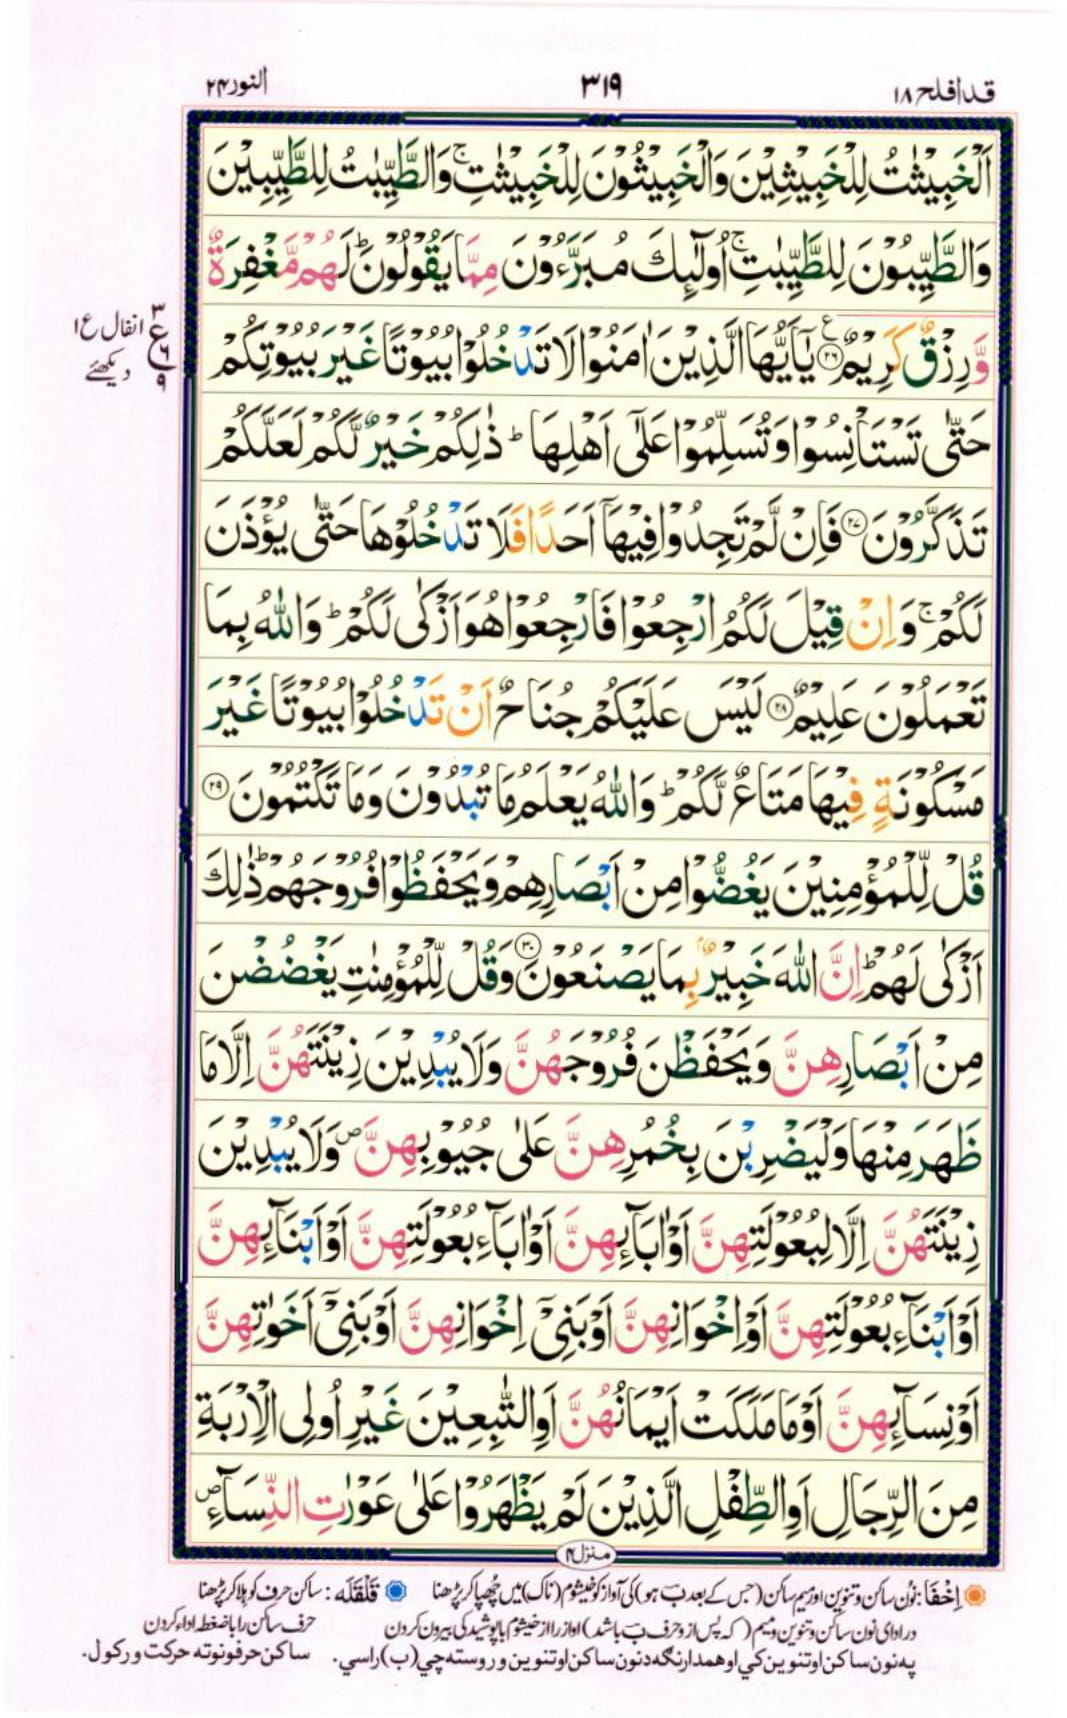 قد افلح ۱۸
۳۱۹
النور ۲۴
اَلْخَبِیْثٰتُ لِلْخَبِیْثِیْنَ وَالْخَبِیْثُوْنَ لِلْخَبِیْثٰتِ ۚ وَالطَّیِّبٰتُ لِلطَّیِّبِیْنَ
وَالطَّیِّبُوْنَ لِلطَّیِّبٰتِ ۚ اُولٰٓئِكَ مُبَرَّءُوْنَ مِمَّا یَقُوْلُوْنَ ؕ لَهُمْ مَّغْفِرَةٌ
وَّرِزْقٌ كَرِیْمٌ ۟﴿۲۶﴾ یٰۤاَیُّهَا الَّذِیْنَ اٰمَنُوْا لَا تَدْخُلُوْا بُیُوْتًا غَیْرَ بُیُوْتِكُمْ
۳
ع
۶
۹
انفال ع۱
دیکھئے
حَتّٰی تَسْتَاْنِسُوْا وَتُسَلِّمُوْا عَلٰۤی اَهْلِهَا ؕ ذٰلِكُمْ خَیْرٌ لَّكُمْ لَعَلَّكُمْ
تَذَكَّرُوْنَ ﴿۲۷﴾ فَاِنْ لَّمْ تَجِدُوْا فِیْهَاۤ اَحَدًا فَلَا تَدْخُلُوْهَا حَتّٰی یُؤْذَنَ
لَكُمْ ۚ وَاِنْ قِیْلَ لَكُمُ ارْجِعُوْا فَارْجِعُوْا هُوَ اَزْكٰی لَكُمْ ؕ وَاللّٰهُ بِمَا
تَعْمَلُوْنَ عَلِیْمٌ ﴿۲۸﴾ لَیْسَ عَلَیْكُمْ جُنَاحٌ اَنْ تَدْخُلُوْا بُیُوْتًا غَیْرَ
مَسْكُوْنَةٍ فِیْهَا مَتَاعٌ لَّكُمْ ؕ وَاللّٰهُ یَعْلَمُ مَا تُبْدُوْنَ وَمَا تَكْتُمُوْنَ ﴿۲۹﴾
قُلْ لِّلْمُؤْمِنِیْنَ یَغُضُّوْا مِنْ اَبْصَارِهِمْ وَیَحْفَظُوْا فُرُوْجَهُمْ ؕ ذٰلِكَ
اَزْكٰی لَهُمْ ؕ اِنَّ اللّٰهَ خَبِیْرٌۢ بِمَا یَصْنَعُوْنَ ﴿۳۰﴾ وَقُلْ لِّلْمُؤْمِنٰتِ یَغْضُضْنَ
مِنْ اَبْصَارِهِنَّ وَیَحْفَظْنَ فُرُوْجَهُنَّ وَلَا یُبْدِیْنَ زِیْنَتَهُنَّ اِلَّا مَا
ظَهَرَ مِنْهَا وَلْیَضْرِبْنَ بِخُمُرِهِنَّ عَلٰی جُیُوْبِهِنَّ ۪ وَلَا یُبْدِیْنَ
زِیْنَتَهُنَّ اِلَّا لِبُعُوْلَتِهِنَّ اَوْ اٰبَآئِهِنَّ اَوْ اٰبَآءِ بُعُوْلَتِهِنَّ اَوْ اَبْنَآئِهِنَّ
اَوْ اَبْنَآءِ بُعُوْلَتِهِنَّ اَوْ اِخْوَانِهِنَّ اَوْ بَنِیْۤ اِخْوَانِهِنَّ اَوْ بَنِیْۤ اَخَوٰتِهِنَّ
اَوْ نِسَآئِهِنَّ اَوْ مَا مَلَكَتْ اَیْمَانُهُنَّ اَوِ التّٰبِعِیْنَ غَیْرِ اُولِی الْاِرْبَةِ
مِنَ الرِّجَالِ اَوِ الطِّفْلِ الَّذِیْنَ لَمْ یَظْهَرُوْا عَلٰی عَوْرٰتِ النِّسَآءِ ۪
منزل۴
اِخْفَا : نُون ساکن و تنوین اور میم ساکن (جس کے بعد ب ہو) کی آواز کو خیشوم (ناک) میں چُھپا کر پڑھنا قَلْقَلَه : ساکن حرف کو ہلا کر پڑھنا
در ادای نون ساکن و تنوین و میم (که پس از و حرف ب باشد) اواز را از خیشوم باپوشیدگی بیرون کردن حرف ساکن را باضغط اداء کردن
په نون ساکن او تنوین کي او همدارنگه د نون ساکن او تنوین و روسته چي (ب) راسي. ساکن حرفونو ته حرکت ورکول.